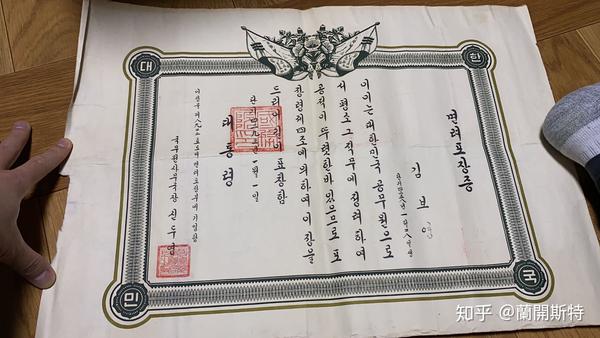 대
한
민
국
면려포장증
김 보
이이는 대한민국 공무원으로
서 평소 그 직무에 정려하여
공적이 뚜렷한바 있으므로 포
장령 제四조에 의하여 이 장을
드리어 길이 표창함
대통령
국무원사무국장 신두영
知乎 @蘭開斯特